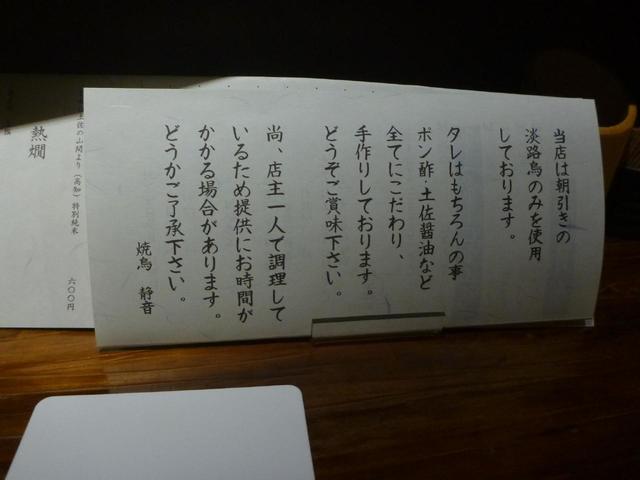 当店は朝引きの
淡路鳥のみを使用
しております。
タレはもちろんの事
ポン酢・土佐醤油など
全てにこだわり、
手作りしております。
どうぞご賞味下さい。
尚、店主一人で調理して
いるため提供にお時間が
かかる場合があります。
どうかご了承下さい。
焼鳥 静音
土佐の山間より(高知)特別純米
六〇〇円
熱燗